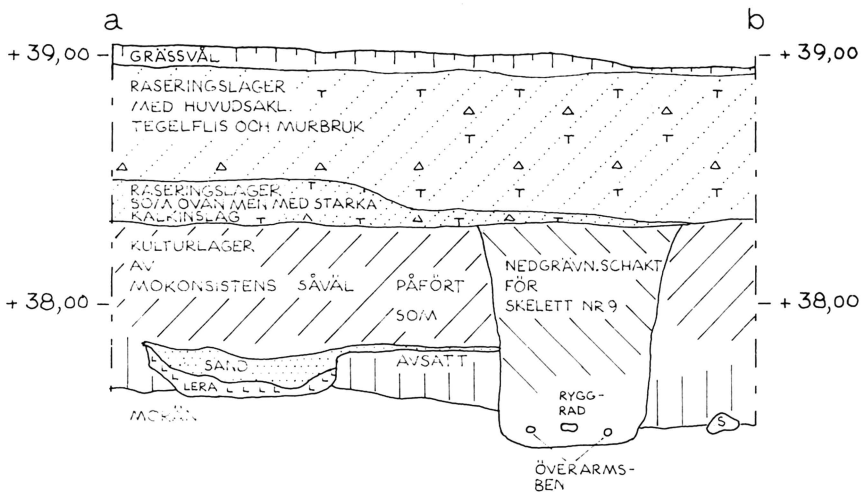 a b
+ 39,00 + 39,00
GRÄSSVÅL
RASERINGSLAGER
MED HUVUDSAKL.
TEGELFLIS OCH MURBRUK
RASERINGSLAGER
SOM OVAN MEN MED STARKA
KALKINSLAG
KULTURLAGER
AV
MOKONSISTENS SÅVÄL PÅFÖRT
SOM
AVSATT
NEDGRÄVN.SCHAKT
FÖR
SKELETT NR 9
+ 38,00 + 38,00
SAND
LERA
MORÄN
RYGG-
RAD
S
ÖVERARMS-
BEN